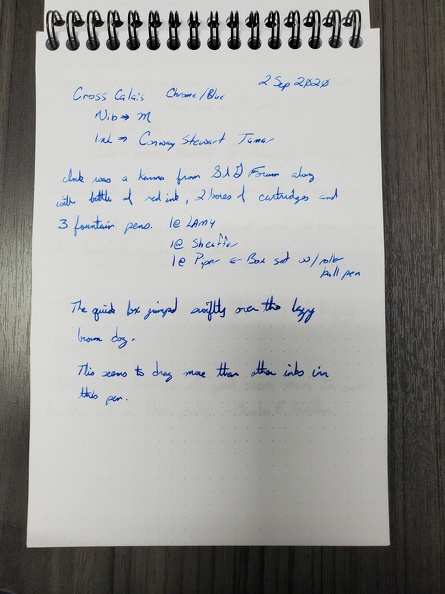 2 Sep 2020
Cross Calais Chrome/Blue
Nib → M
Ink → Conway Stewart Tamar
Ink was a karma from S&D Forum along
with bottle of red ink, 2 boxes of cartridges and
3 fountain pens. 1@ LAMY
1@ Sheaffer
1@ Piper ← Box set w/roller
ball pen
The quick fox jumped swiftly over the lazy
brown dog.
This seems to drag more than other inks in
this pen.